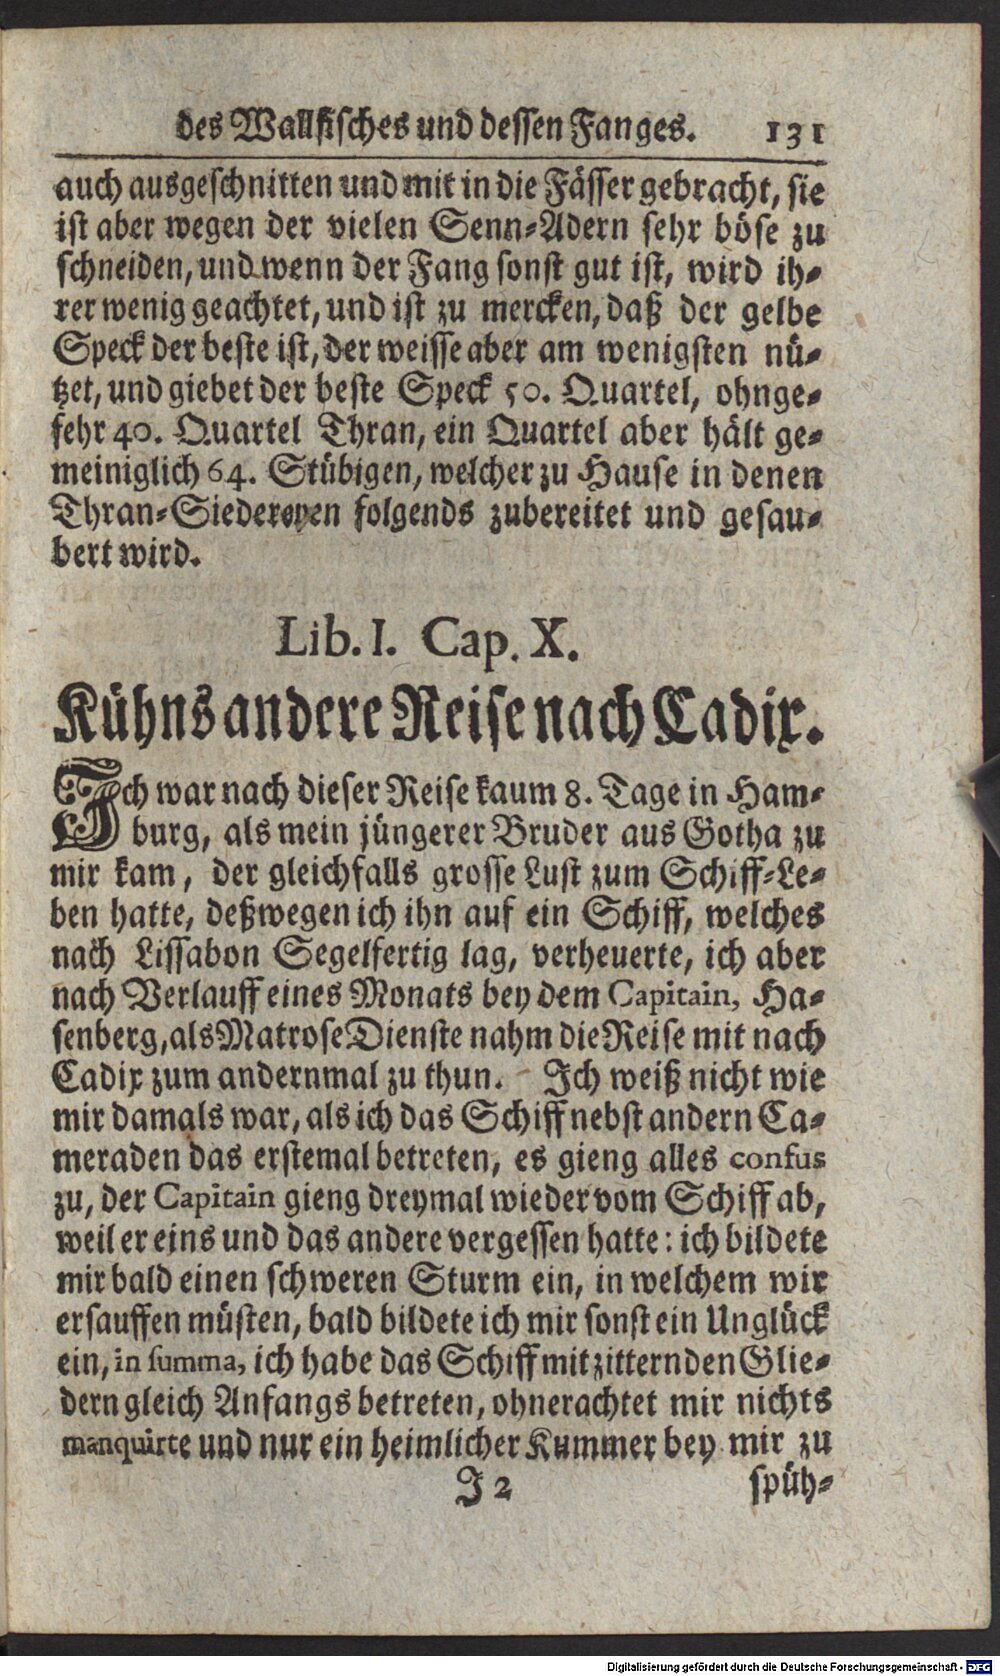 des Wallfisches und dessen Fanges. 131
auch ausgeschnitten und mit in die Fässer gebracht, sie
ist aber wegen der vielen Senn-Adern sehr böse zu
schneiden, und wenn der Fang sonst gut ist, wird ih-
rer wenig geachtet, und ist zu mercken, daß der gelbe
Speck der beste ist, der weisse aber am wenigsten nü-
tzet, und giebet der beste Speck 50. Quartel, ohnge-
fehr 40. Quartel Thran, ein Quartel aber hält ge-
meiniglich 64. Stübigen, welcher zu Hause in denen
Thran-Siedereyen folgends zubereitet und gesau-
bert wird.
Lib. I. Cap. X.
Kühns andere Reise nach Cadix.
Ich war nach dieser Reise kaum 8. Tage in Ham-
burg, als mein jüngerer Bruder aus Gotha zu
mir kam, der gleichfalls grosse Lust zum Schiff-Le-
ben hatte, deßwegen ich ihn auf ein Schiff, welches
nach Lissabon Segelfertig lag, verheuerte, ich aber
nach Verlauff eines Monats bey dem Capitain, Ha-
senberg, als Matrose Dienste nahm die Reise mit nach
Cadix zum andernmal zu thun. Ich weiß nicht wie
mir damals war, als ich das Schiff nebst andern Ca-
meraden das erstemal betreten, es gieng alles confus
zu, der Capitain gieng dreymal wieder vom Schiff ab,
weil er eins und das andere vergessen hatte: ich bildete
mir bald einen schweren Sturm ein, in welchem wir
ersauffen müsten, bald bildete ich mir sonst ein Unglück
ein, in summa, ich habe das Schiff mit zitternden Glie-
dern gleich Anfangs betreten, ohnerachtet mir nichts
manquirte und nur ein heimlicher Kummer bey mir zu
J 2 spüh-
Digitalisierung gefördert durch die Deutsche Forschungsgemeinschaft - DFG